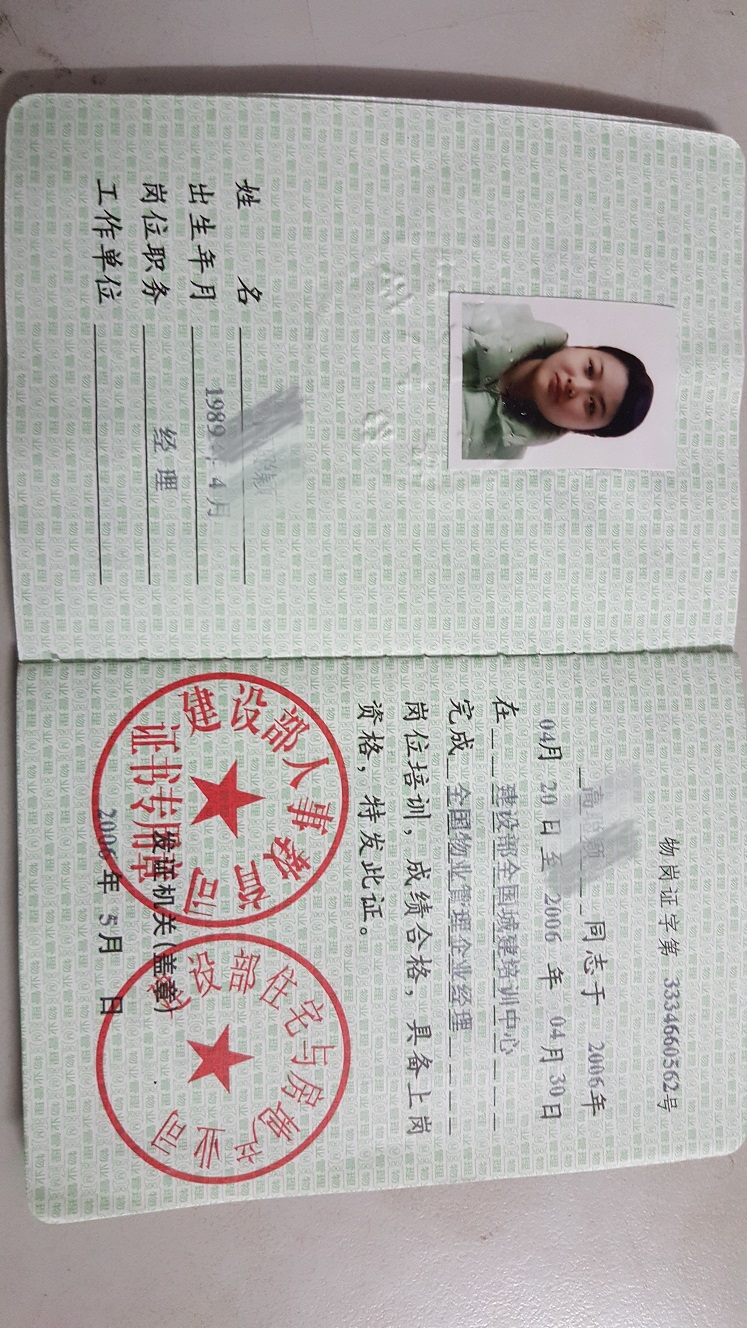 姓名
出生年月 1989 4月
岗位职务 经理
工作单位
物岗证字第 3334660562号
高 同志于 2006年
04月 20 日至 2006 年 04月30日
在 建设部全国城建培训中心
完成 全国物业管理企业经理
岗位培训，成绩合格，具备上岗
资格，特发此证。
发证机关(盖章)
2006 年 5月 日
建设部人事教育司
证书专用章
建设部住宅与房地产业司
物业管理